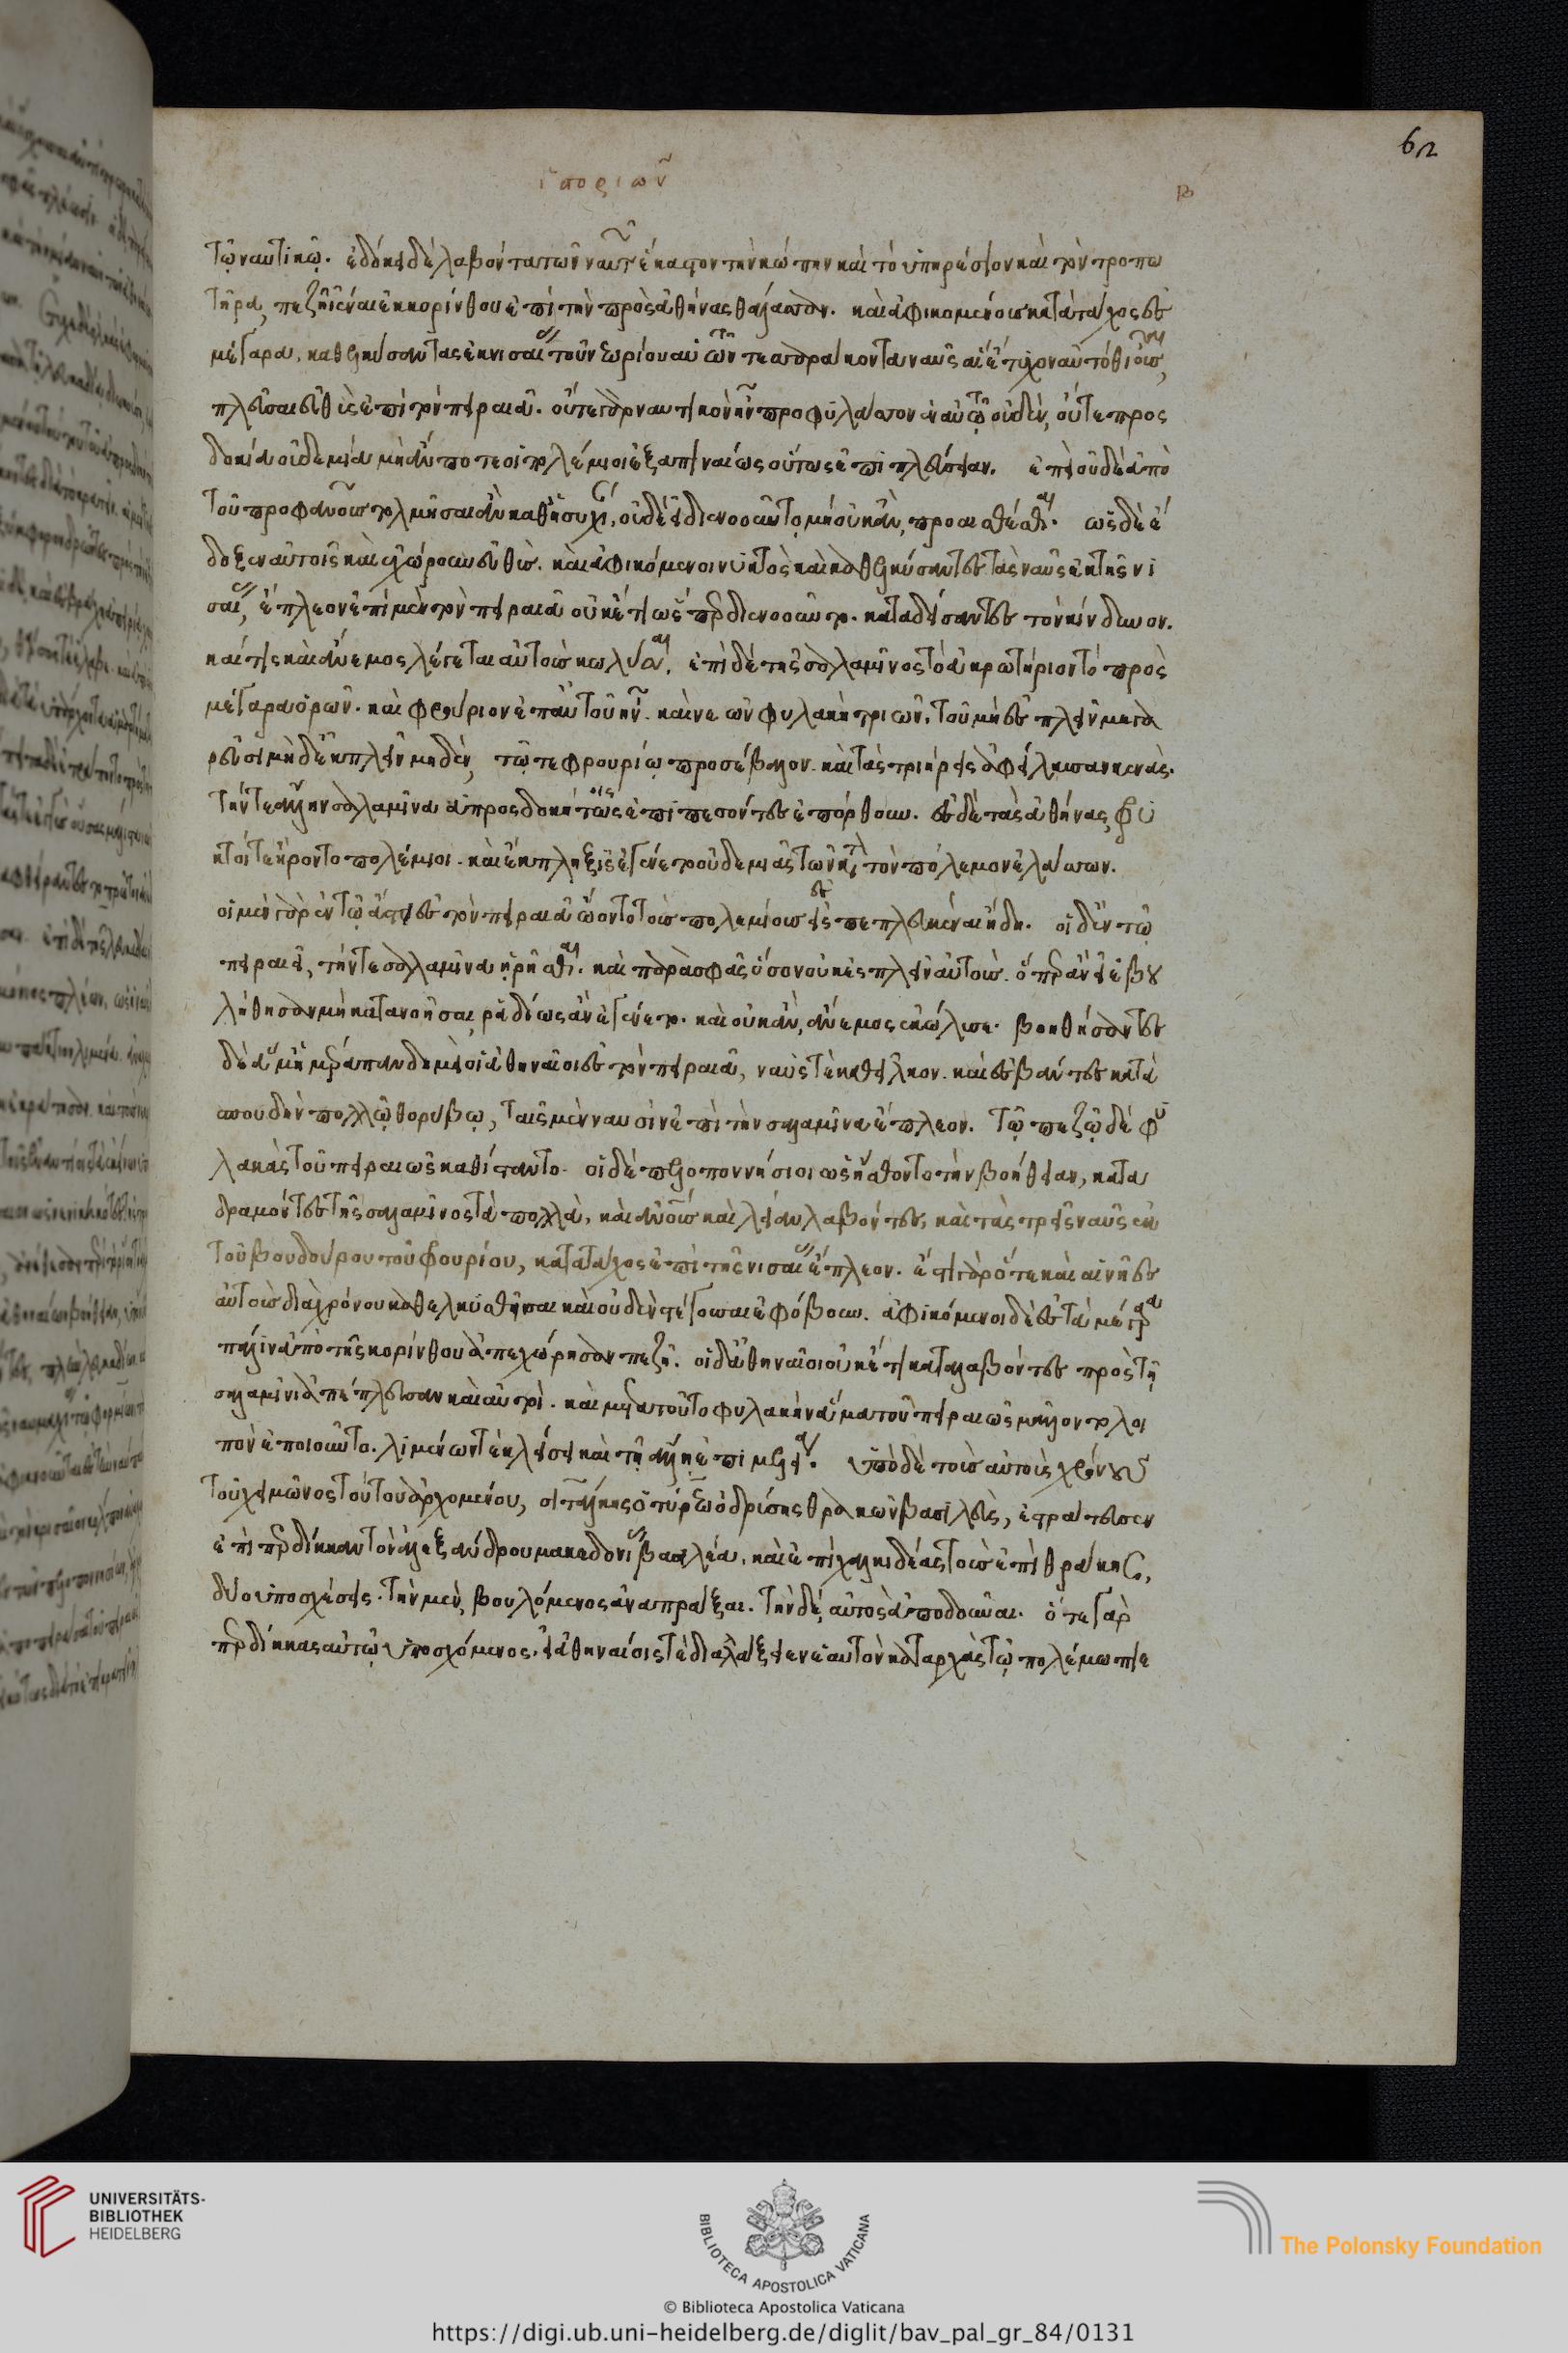 ἱστοριῶν
β
62
τῷ ναυτικῷ. ἐδόκει δὲ λαβόντα τῶν ναυτῶν ἕκαστον τὴν κώπην καὶ τὸ ὑπηρέσιον καὶ τὸν τροπω
τῆρα, πεζῇ ἰέναι ἐκ κορίνθου ἐπὶ τὴν πρὸς ἀθήνας θάλασσαν. καὶ ἀφικομένους κατὰ τάχος ἐς
μέγαρα, καθελκύσαντας ἐκ νισαίας τοῦ νεωρίου αὐτῶν τεσσαράκοντα ναῦς αἳ ἔτυχον αὐτόθι οὖσαι,
πλεῦσαι εὐθὺς ἐπὶ τὸν πειραιᾶ. οὔτε γὰρ ναυτικὸν ἦν προφυλάσσον ἐν αὐτῷ οὐδὲν, οὔτε προς
δοκία οὐδεμία μὴ ἄν ποτε οἱ πολέμιοι ἐξαπιναίως οὕτως ἐπιπλεύσειαν. ἐπεὶ οὐδὲ ἀπὸ
τοῦ προφανοῦς τολμῆσαι ἂν καθησυχίαν, οὐδὲ εἰ διενοοῦντο, μὴ οὐκ ἂν, προαισθέσθαι. ὡς δὲ ἔ
δοξεν αὐτοῖς καὶ ἐχώρουν εὐθὺς. καὶ ἀφικόμενοι νυκτὸς καὶ καθελκύσαντες τὰς ναῦς ἐκ τῆς νι
σαίας, ἔπλεον ἐπὶ μὲν τὸν πειραιᾶ οὐκέτι ὥσπερ διενοοῦντο. καταδείσαντες τὸν κίνδυνον.
καί τις καὶ ἄνεμος λέγεται αὐτοὺς κωλῦσαι. ἐπὶ δὲ τῆς σαλαμῖνος τὸ ἀκρωτήριον τὸ πρὸς
μέγαρα ὁρῶν. καὶ φρούριον ἐπ᾽ αὐτοῦ ἦν. καὶ νεῶν φυλακὴ τριῶν, τοῦ μὴ ἐσπλεῖν μεγα
ρεῦσι μὴδὲ ἐκπλεῖν μηδέν, τῷ τε φρουρίῳ προσέβαλον. καὶ τὰς τριήρεις ἀφείλκυσαν κενάς.
τήν τε ἄλλην σαλαμῖνα ἀπροσδοκήτοις ἐπιπεσόντες ἐπόρθουν. ἐς δὲ τὰς ἀθήνας, φρυ
κτοί τε ᾔροντο πολέμιοι. καὶ ἔκπληξις ἐγένετο οὐδεμιᾶς τῶν κατὰ τὸν πόλεμον ἐλάσσων.
οἱ μὲν γὰρ ἐν τῷ ἄστει ἐς τὸν πειραιᾶ ᾤοντο τοὺς πολεμίους ἐσπεπλευκέναι ἤδη. οἱ δ᾽ ἐν τῷ
πειραιεῖ, τήν τε σαλαμῖνα ᾑρῆσθαι. καὶ παρὰ σφᾶς ὅσον οὐκ ἐσπλεῖν αὐτούς. ὅπερ ἂν εἰ ἐβου
λήθησαν μὴ κατανοῆσαι, ῥᾳδίως ἂν ἐγένετο. καὶ οὐκ ἂν, ἄνεμος ἐκώλυσε. βοηθήσαντες
δὲ ἅμ᾽ ἡμέρᾳ πανδημεὶ οἱ ἀθηναῖοι ἐς τὸν πειραιᾶ, ναῦς τὲ καθεῖλκον. καὶ ἐσβάντες κατὰ
σπουδὴν πολλῷ θορύβῳ, ταῖς μὲν ναυσὶν ἐπὶ τὴν σαλαμῖνα ἔπλεον. τῷ πεζῷ δὲ φυ
λακὰς τοῦ πειραιῶς καθίσταντο. οἱ δὲ πελοποννήσιοι ὡς ᾔσθοντο τὴν βοήθειαν, κατα
δραμόντες τῆς σαλαμῖνος τὰ πολλὰ, καὶ ἀνθρώπους καὶ λείαν λαβόντες, καὶ τὰς τρεῖς ναῦς ἐκ
τοῦ βουδούρου τοῦ φρουρίου, κατατάχος ἐπὶ τῆς νισαίας ἔπλεον. ἔστι γὰρ ὅτε καὶ αἱ νῆες
αὐτοὺς διαχρόνου καθελκυσθεῖσαι καὶ οὐδὲν στέγουσαι ἐφόβουν. ἀφικόμενοι δὲ ἐς τὰ μέγαρα
πάλιν ἀπὸ τῆς κορίνθου ἀπεχώρησαν πεζῇ. οἱ δ᾽ ἀθηναῖοι οὐκέτι καταλαβόντες πρὸς τῇ
σαλαμῖνι ἀπέπλευσαν καὶ αὐτοὶ. καὶ μετὰ τοῦτο φυλακὴν ἅμα τοῦ πειραιῶς μᾶλλον τολοι
πὸν ἐποιοῦντο. λιμένων τὲ κλείσει καὶ τῇ ἄλλῃ ἐπιμελείᾳ. ὑπὸ δὲ τοὺς αὐτοὺς χρόνους
τοῦ χειμῶνος τούτου ἀρχομένου, σιτάλκης ὁ τήρεω ὀδρύσης θρᾳκῶν βασιλεὺς, ἐστράτευσεν
ἐπὶ περδίκκαν τὸν ἀλεξάνδρου μακεδονίας βασιλέα, καὶ ἐπὶ χαλκιδέας τοὺς ἐπὶ θρᾴκης,
δύο ὑποσχέσεις. τὴν μὲν, βουλόμενος ἀναπρᾶξαι. τὴν δὲ, αὐτὸς ἀποδοῦναι. ὅ τε γὰρ
περδίκκας αὐτῷ ὑποσχόμενος, εἰ ἀθηναίοις τὲ διαλλάξειεν ἑαυτὸν κατ᾽ ἀρχὰς τῷ πολέμῳ πιε
UNIVERSITÄTS-
BIBLIOTHEK
HEIDELBERG
BIBLIOTECA APOSTOLICA VATICANA
The Polonsky Foundation
© Biblioteca Apostolica Vaticana
https://digi.ub.uni-heidelberg.de/diglit/bav_pal_gr_84/0131